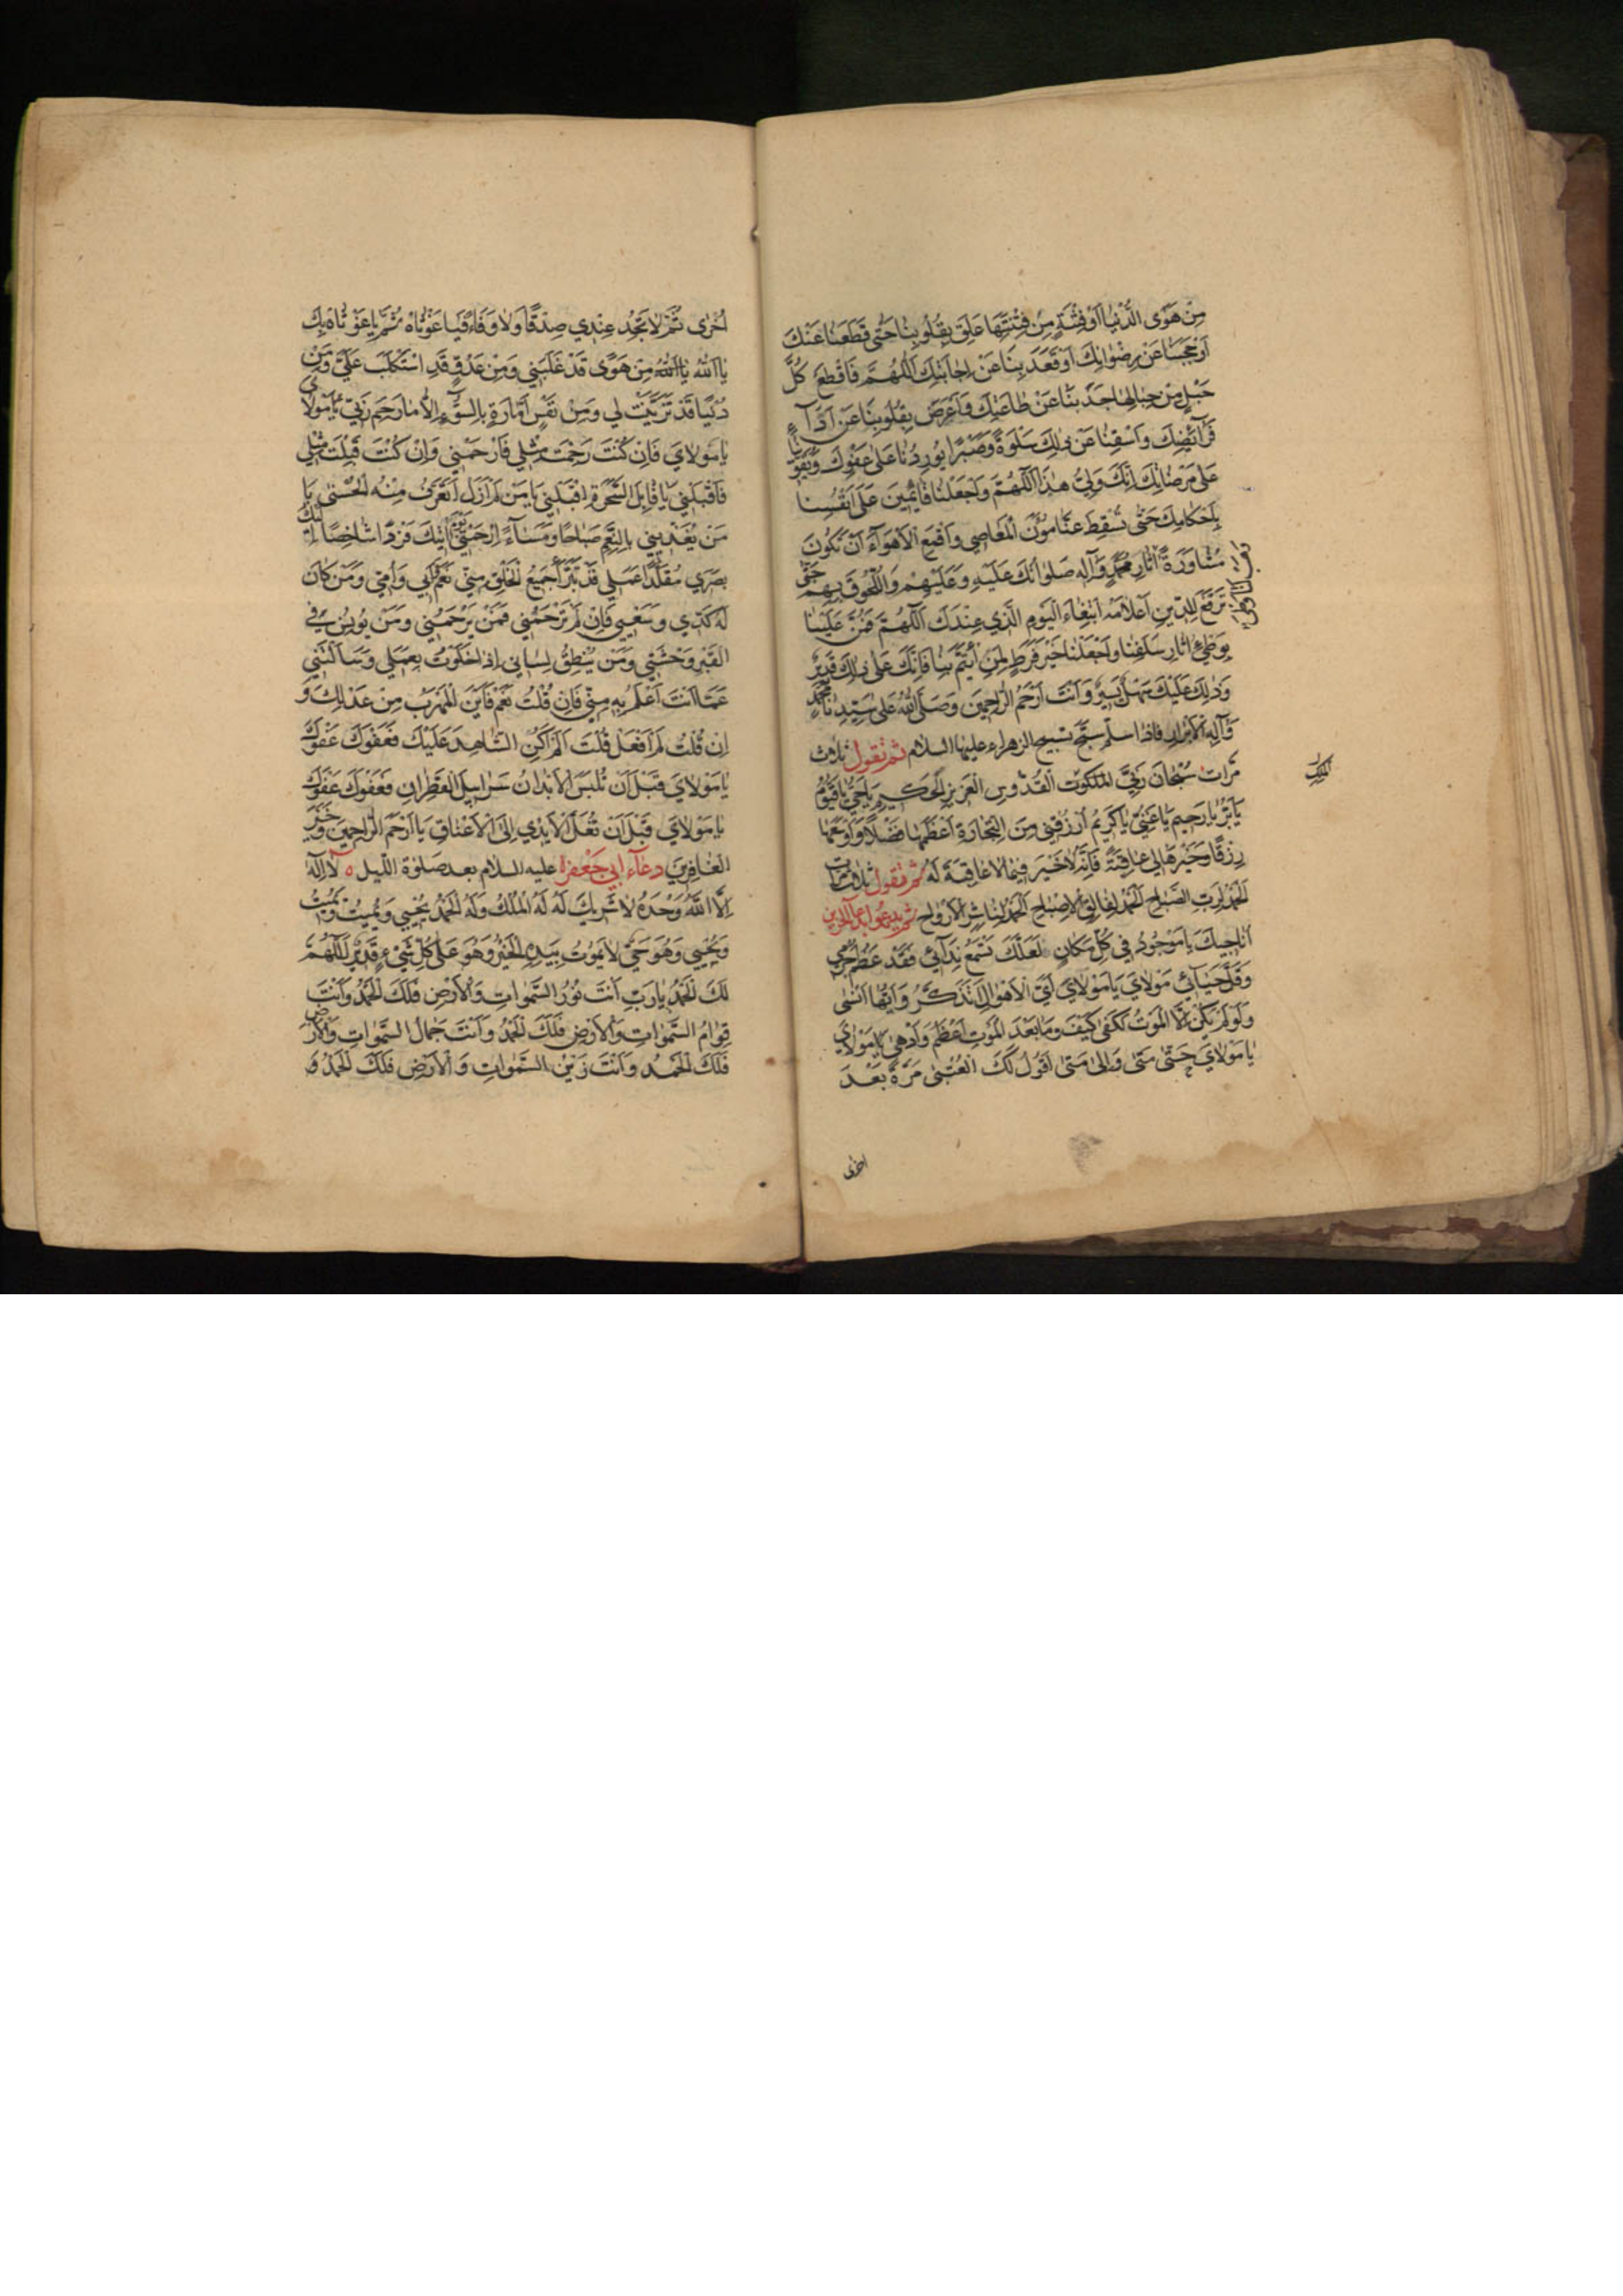 مِنْ هَوَى الدُّنْيَا اَوْ فِتْنَةٍ مِنْ فِتْنَتِهَا عَلِقَ بِقُلُوبِنَا حَتّٰى قَطَعَنَا عَنْكَ
اَوْ حَجَبَنَا عَنْ رِضْوَانِكَ اَوْ قَعَدَ بِنَا عَنْ اِجَابَتِكَ اَللّٰهُمَّ فَاقْطَعْ كُلَّ
حَبْلٍ مِنْ حِبَالِهَا جَذَبَنَا عَنْ طَاعَتِكَ وَاَعْرَضَ بِقُلُوبِنَا عَنْ اَدَاۤءِ
فَرَائِضِكَ وَاسْقِنَا عَنْ ذٰلِكَ سَلْوَةً وَصَبْرًا يُورِدُنَا عَلٰى عَفْوِكَ وَيُقَوِّينَا
عَلٰى مَرْضَاتِكَ اِنَّكَ وَلِيُّ هٰذَا اَللّٰهُمَّ وَاجْعَلْنَا قَائِمِينَ عَلٰى اَنْفُسِنَا
بِاَحْكَامِكَ حَتّٰى تُسْقِطَ عَنَّا مُؤَنَ الْمَعَاصِي وَاقْمَعِ الْاَهْوَاۤءَ اَنْ تَكُونَ
مُشَاوَرَةً اٰثَارِ مُحَمَّدٍ وَآلِهِ صَلَوَاتُكَ عَلَيْهِ وَعَلَيْهِمْ وَاللُّحُوقَ بِهِمْ حَتّٰى
تَرْفَعَ لِلدِّينِ اَعْلَامَهُ ابْتِغَاۤءَ الْيَوْمِ الَّذِي عِنْدَكَ اَللّٰهُمَّ فَمُنَّ عَلَيْنَا
بِوَطْيِ اٰثَارِ سَلَفِنَا وَاجْعَلْنَا خَيْرَ فَرَطٍ لِمَنِ ائْتَمَّ بِنَا فَاِنَّكَ عَلٰى ذٰلِكَ قَدِيرٌ
وَذٰلِكَ عَلَيْكَ سَهْلٌ يَسِيرٌ وَاَنْتَ اَرْحَمُ الرَّاحِمِينَ وَصَلَّى اللّٰهُ عَلٰى سَيِّدِنَا مُحَمَّدٍ
وَآلِهِ الْاَبْرَارِ فاذا سلّم سبّح تسبيح الزهراء عليها السلام ثم تقول ثلاث
مرات سُبْحَانَ رَبِّيَ الْمَلَكُوتِ الْقُدُّوسِ الْعَزِيزِ الْحَكِيمِ يَا حَيُّ يَا قَيُّومُ
يَا بَرُّ يَا رَحِيمُ يَا غَنِيُّ يَا كَرِيمُ اُرْزُقْنِي مِنَ التِّجَارَةِ اَعْظَمَهَا فَضْلًا وَاَوْسَعَهَا
رِزْقًا وَخَيْرَهَا لِي عَاقِبَةً فَاِنَّهُ لَا خَيْرَ فِيمَا لَا عَاقِبَةَ لَهُ ثم تقول ثلاث مرات
اَلْحَمْدُ لِرَبِّ الصَّبَاحِ اَلْحَمْدُ لِفَالِقِ الْاِصْبَاحِ اَلْحَمْدُ لِنَاشِرِ الْاَرْوَاحِ ثم يدعو بدعاۤء الحزين
اُنَاجِيكَ يَا مَوْجُودُ فِي كُلِّ مَكَانٍ لَعَلَّكَ تَسْمَعُ نِدَائِي فَقَدْ عَظُمَ جُرْمِي
وَقَلَّ حَيَائِي مَوْلَايَ يَا مَوْلَايَ اَيَّ الْاَهْوَالِ اَتَذَكَّرُ وَاَيَّهَا اَنْسٰى
وَلَوْ لَمْ يَكُنْ اِلَّا الْمَوْتُ لَكَفٰى كَيْفَ وَمَا بَعْدَ الْمَوْتِ اَعْظَمُ وَاَدْهٰى يَا مَوْلَايَ
يَا مَوْلَايَ حَتّٰى مَتٰى وَاِلٰى مَتٰى اَقُولُ لَكَ الْعُتْبٰى مَرَّةً بَعْدَ
اخرى
الْمَلِكِ
اُخْرٰى ثُمَّ لَا تَجِدُ عِنْدِي صِدْقًا وَلَا وَفَاءً فَيَا غَوْثَاهُ ثُمَّ يَا غَوْثَاهُ بِكَ
يَا اَللّٰهُ يَا اَللّٰهُ مِنْ هَوًى قَدْ غَلَبَنِي وَمِنْ عَدُوٍّ قَدِ اسْتَكْلَبَ عَلَيَّ وَمِنْ
دُنْيَا قَدْ تَزَيَّنَتْ لِي وَمِنْ نَفْسٍ اَمَّارَةٍ بِالسُّوۤءِ اِلَّا مَا رَحِمَ رَبِّي يَا مَوْلَايَ
يَا مَوْلَايَ فَاِنْ كُنْتَ رَحِمْتَ مِثْلِي فَارْحَمْنِي وَاِنْ كُنْتَ قَبِلْتَ مِثْلِي
فَاقْبَلْنِي يَا قَابِلَ السَّحَرَةِ اِقْبَلْنِي يَا مَنْ لَمْ اَزَلْ اَتَعَرَّفُ مِنْهُ الْحُسْنٰى يَا
مَنْ يُغَذِّينِي بِالنِّعَمِ صَبَاحًا وَمَسَاۤءً اِرْحَمْنِي يَوْمَ اٰتِيكَ فَرْدًا شَاخِصًا اِلَيْكَ
بَصَرِي مُقَلَّدًا عَمَلِي قَدْ تَبَرَّاَ جَمِيعُ الْخَلْقِ مِنِّي نَعَمْ اَبِي وَاُمِّي وَمَنْ كَانَ
لَهُ كَدِّي وَسَعْيِي فَاِنْ لَمْ تَرْحَمْنِي فَمَنْ يَرْحَمُنِي وَمَنْ يُونِسُ فِي
الْقَبْرِ وَحْشَتِي وَمَنْ يُنْطِقُ لِسَانِي اِذَا خَلَوْتُ بِعَمَلِي وَسَاَلْتَنِي
عَمَّا اَنْتَ اَعْلَمُ بِهِ مِنِّي فَاِنْ قُلْتُ نَعَمْ فَاَيْنَ الْمَهْرَبُ مِنْ عَدْلِكَ وَ
اِنْ قُلْتُ لَمْ اَفْعَلْ قُلْتَ اَلَمْ اَكُنِ الشَّاهِدَ عَلَيْكَ فَعَفْوَكَ عَفْوَكَ
يَا مَوْلَايَ قَبْلَ اَنْ تُلْبَسَ الْاَبْدَانُ سَرَابِيلَ الْقَطِرَانِ فَعَفْوَكَ عَفْوَكَ
يَا مَوْلَايَ قَبْلَ اَنْ تُغَلَّ الْاَيْدِي اِلَى الْاَعْنَاقِ يَا اَرْحَمَ الرَّاحِمِينَ وَخَيْرَ
الْغَافِرِينَ دعاۤء ابي جَعْفَرٍ عليه السلام بعد صلوة الليل ه لَا اِلٰهَ
اِلَّا اللّٰهُ وَحْدَهُ لَا شَرِيكَ لَهُ لَهُ الْمُلْكُ وَلَهُ الْحَمْدُ يُحْيِي وَيُمِيتُ وَيُمِيتُ
وَيُحْيِي وَهُوَ حَيٌّ لَا يَمُوتُ بِيَدِهِ الْخَيْرُ وَهُوَ عَلٰى كُلِّ شَيْءٍ قَدِيرٌ اَللّٰهُمَّ
لَكَ الْحَمْدُ يَا رَبِّ اَنْتَ نُورُ السَّمٰوَاتِ وَالْاَرْضِ فَلَكَ الْحَمْدُ وَاَنْتَ
قِوَامُ السَّمٰوَاتِ وَالْاَرْضِ فَلَكَ الْحَمْدُ وَاَنْتَ جَمَالُ السَّمٰوَاتِ وَالْاَرْضِ
فَلَكَ الْحَمْدُ وَاَنْتَ زَيْنُ السَّمٰوَاتِ وَالْاَرْضِ فَلَكَ الْحَمْدُ وَ